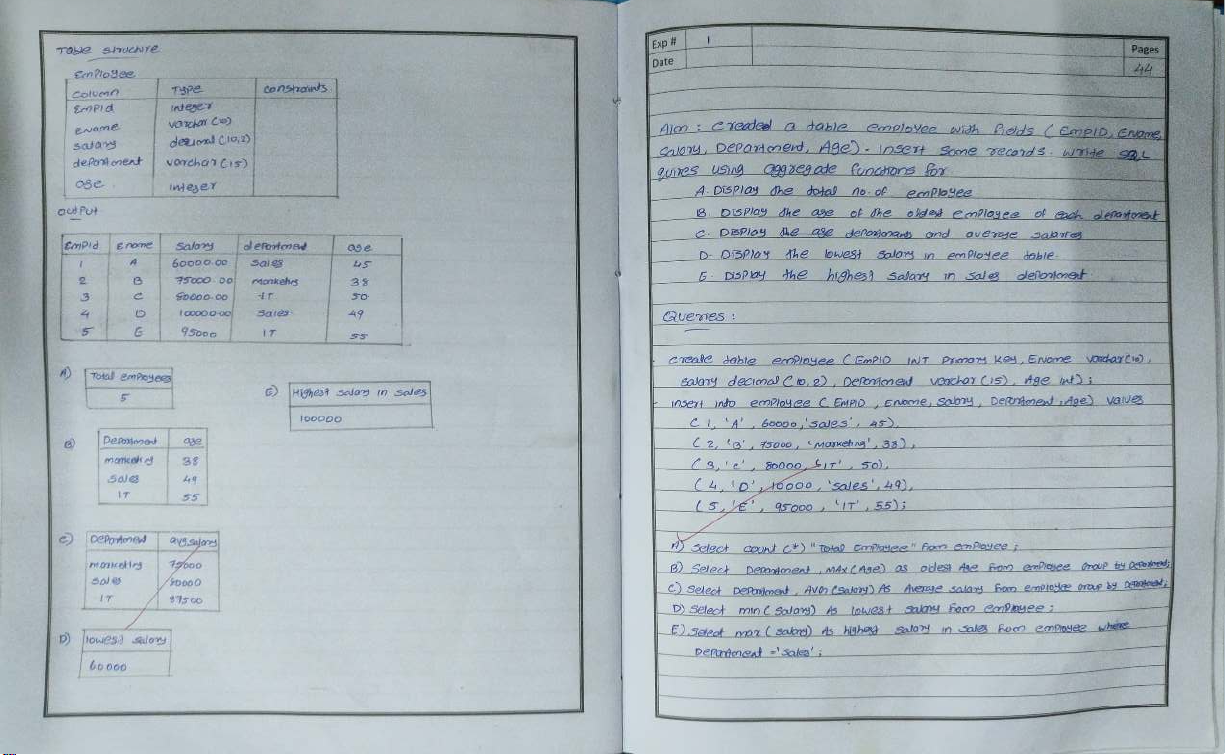 Table structure
Employee
column Type constraints
EmpId integer
Ename varchar (10)
salary decimal (10,2)
department varchar (15)
age integer
output
EmpId Ename Salary department age
1 A 60000.00 sales 45
2 B 75000.00 marketing 38
3 C 80000.00 IT 50
4 D 100000.00 sales 49
5 E 95000 IT 55
A) Total employees
5
E) Highest salary in sales
100000
B) Department age
marketing 38
sales 49
IT 55
C) Department avg.salary
marketing 75000
sales 80000
IT 87500
D) lowest salary
60000
Exp # 1 Pages
Date 44
Aim : Created a table employee with fields ( EmpID, Ename,
Salary, Department, Age) - Insert some records. write SQL
quires using aggregate functions for
A. Display the total no. of employee
B. Display the age of the oldest employee of each department
C. Display the age departments and average salaries
D. Display the lowest salary in employee table.
E. Display the highest salary in sales department.
Queries :
- create table employee ( EmpID INT Primary Key, Ename varchar(10),
salary decimal (10,2), Department varchar (15), Age int) ;
- insert into employee ( EmpID , Ename, Salary, Department, Age) values
( 1, 'A' , 60000, 'sales' , 45),
( 2, 'B' , 75000, 'marketing' , 38),
( 3, 'c' , 80000, 'IT' , 50),
( 4, 'D' , 10000, 'sales', 49),
( 5, 'E' , 95000 , 'IT' , 55);
A) Select count (*) "Total Employee" from employee ;
B) Select Department , MAX (Age) as oldest Age from employee Group by Department;
C) Select Department , AVG (salary) As Average salary from employee Group by Department;
D) Select min ( Salary) As lowest salary from employee ;
E) Select max ( salary) As highest salary in sales from employee where
Department = 'sales' ;